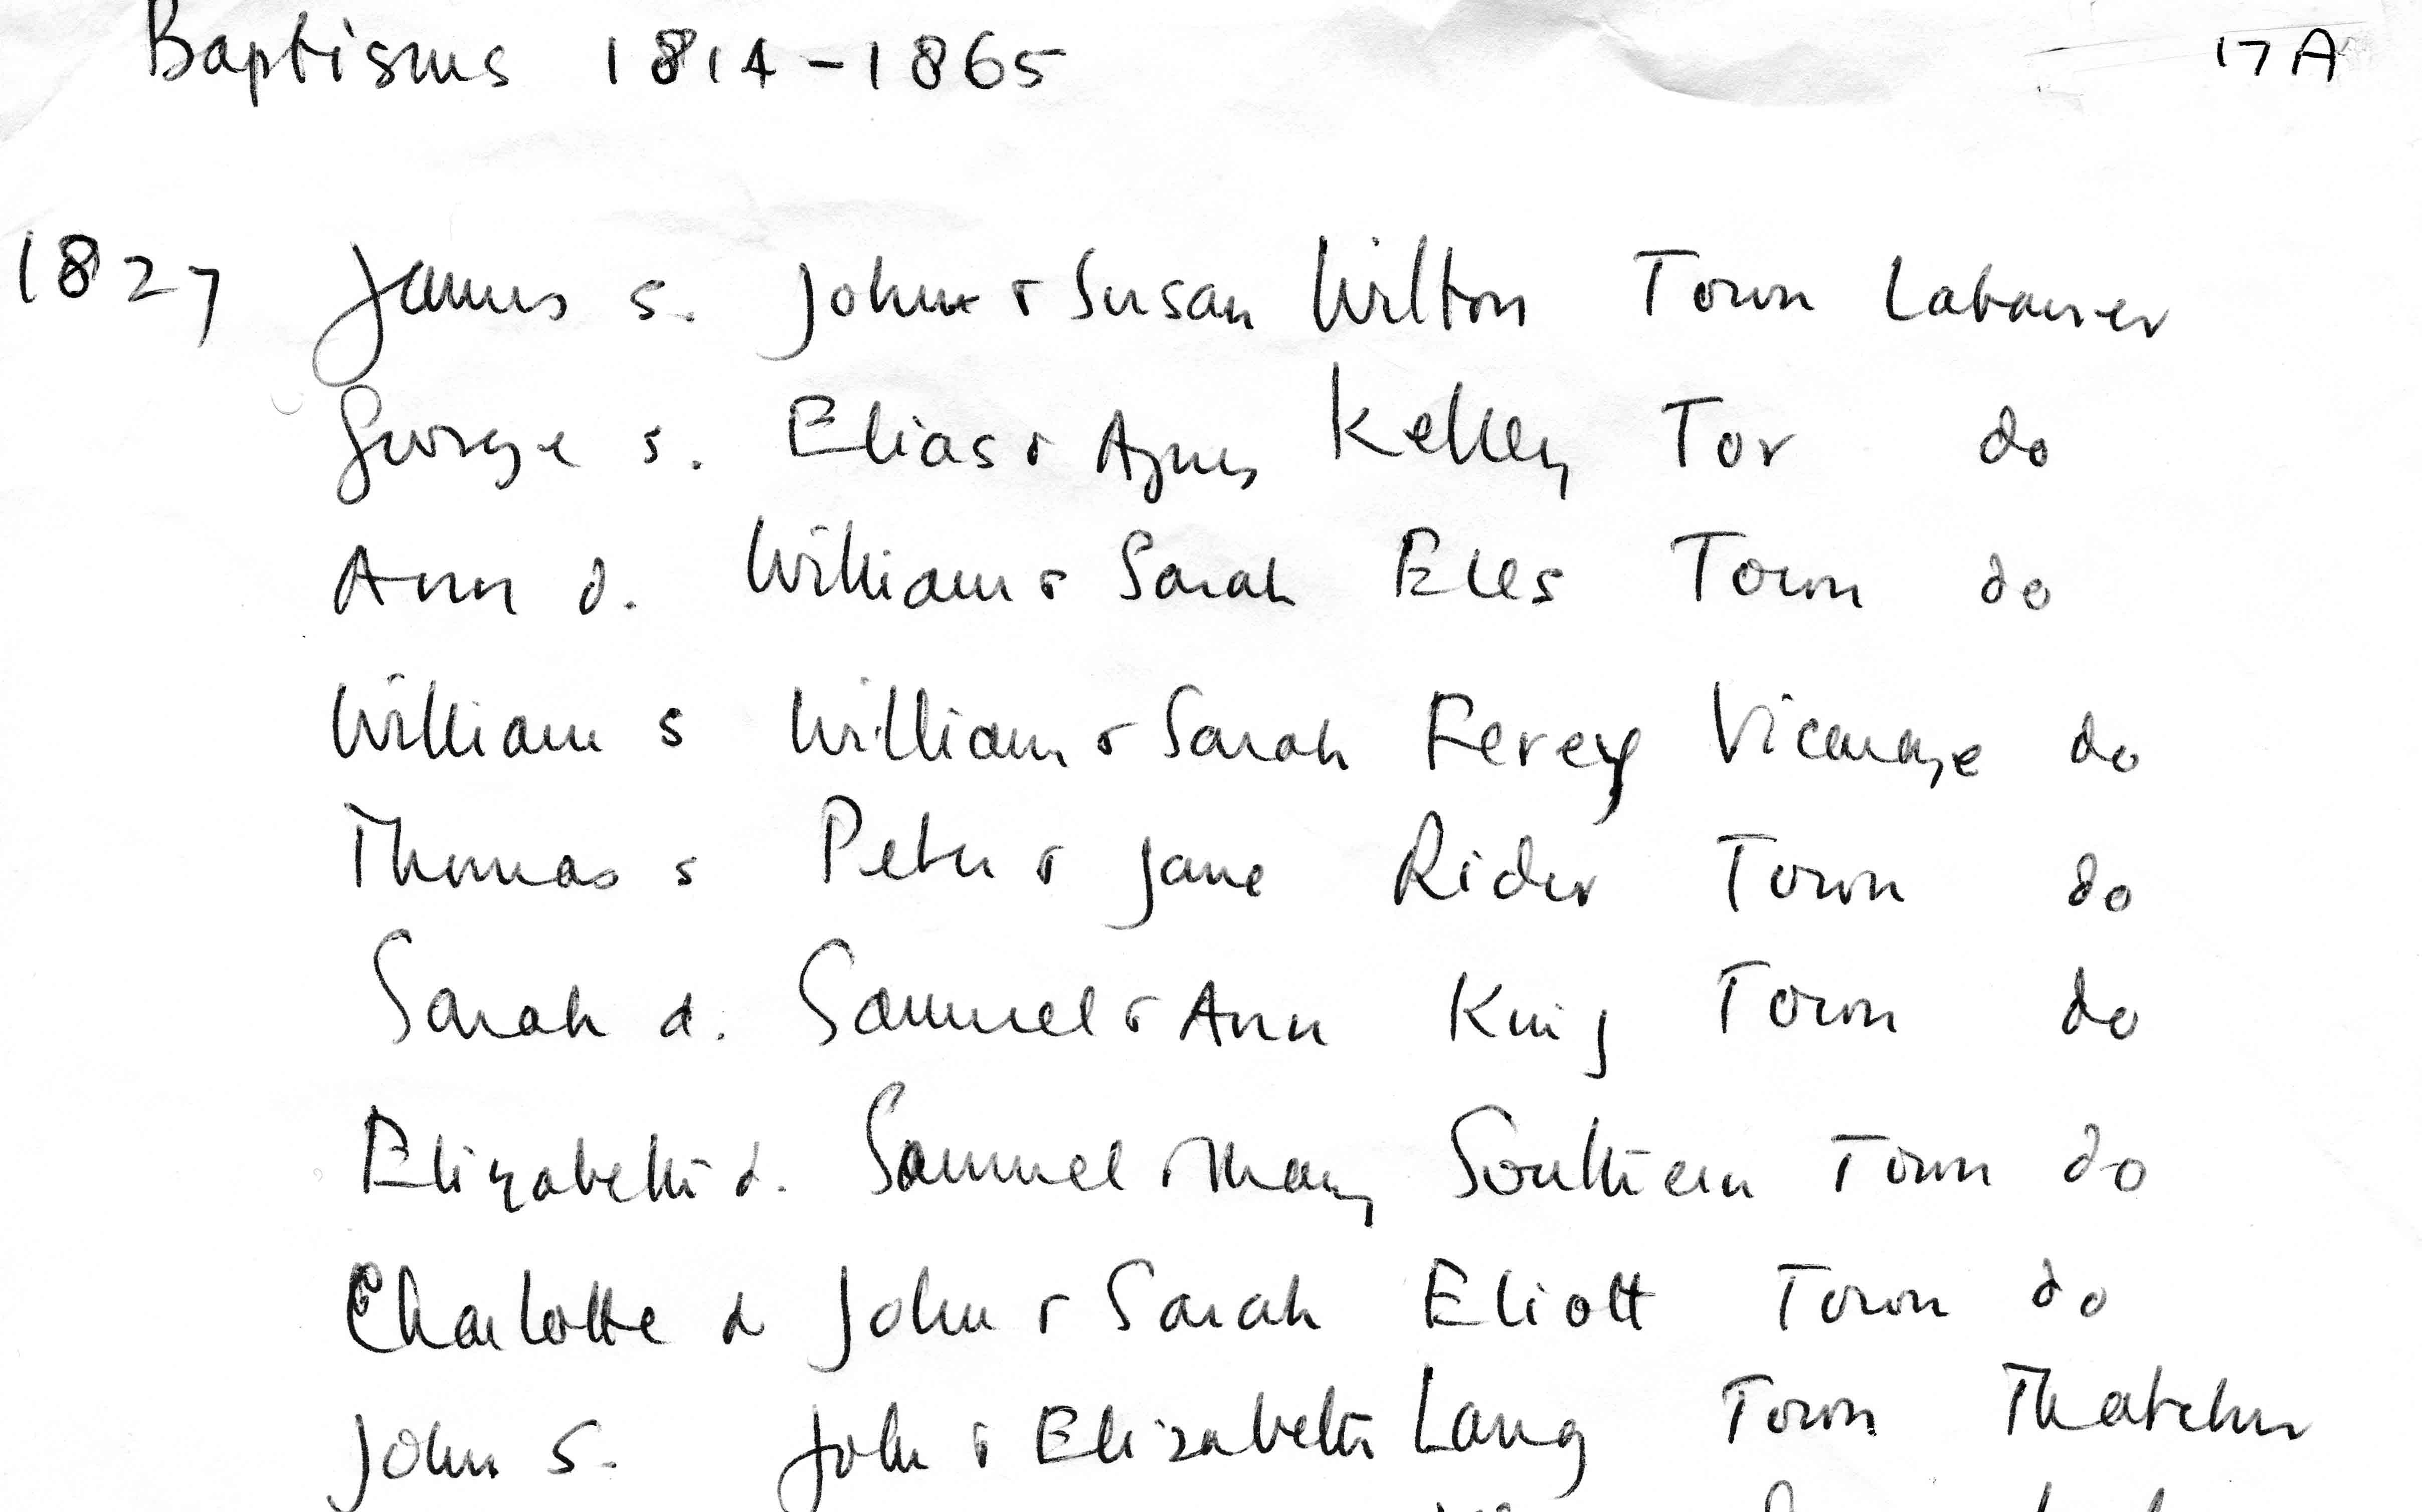 Baptisms 1814-1865 17A
1827 James s. John & Susan Wilton Town Labourer
George s. Elias & Agnes Kelley Tor do
Ann d. William & Sarah Eles Town do
William s William & Sarah Ferey Vicarage do
Thomas s Peter & Jane Rider Town do
Sarah d. Samuel & Ann King Town do
Elizabeth d. Samuel & Mary Southern Town do
Charlotte d John & Sarah Eliott Town do
John s. John & Elizabeth Lang Town Thatcher